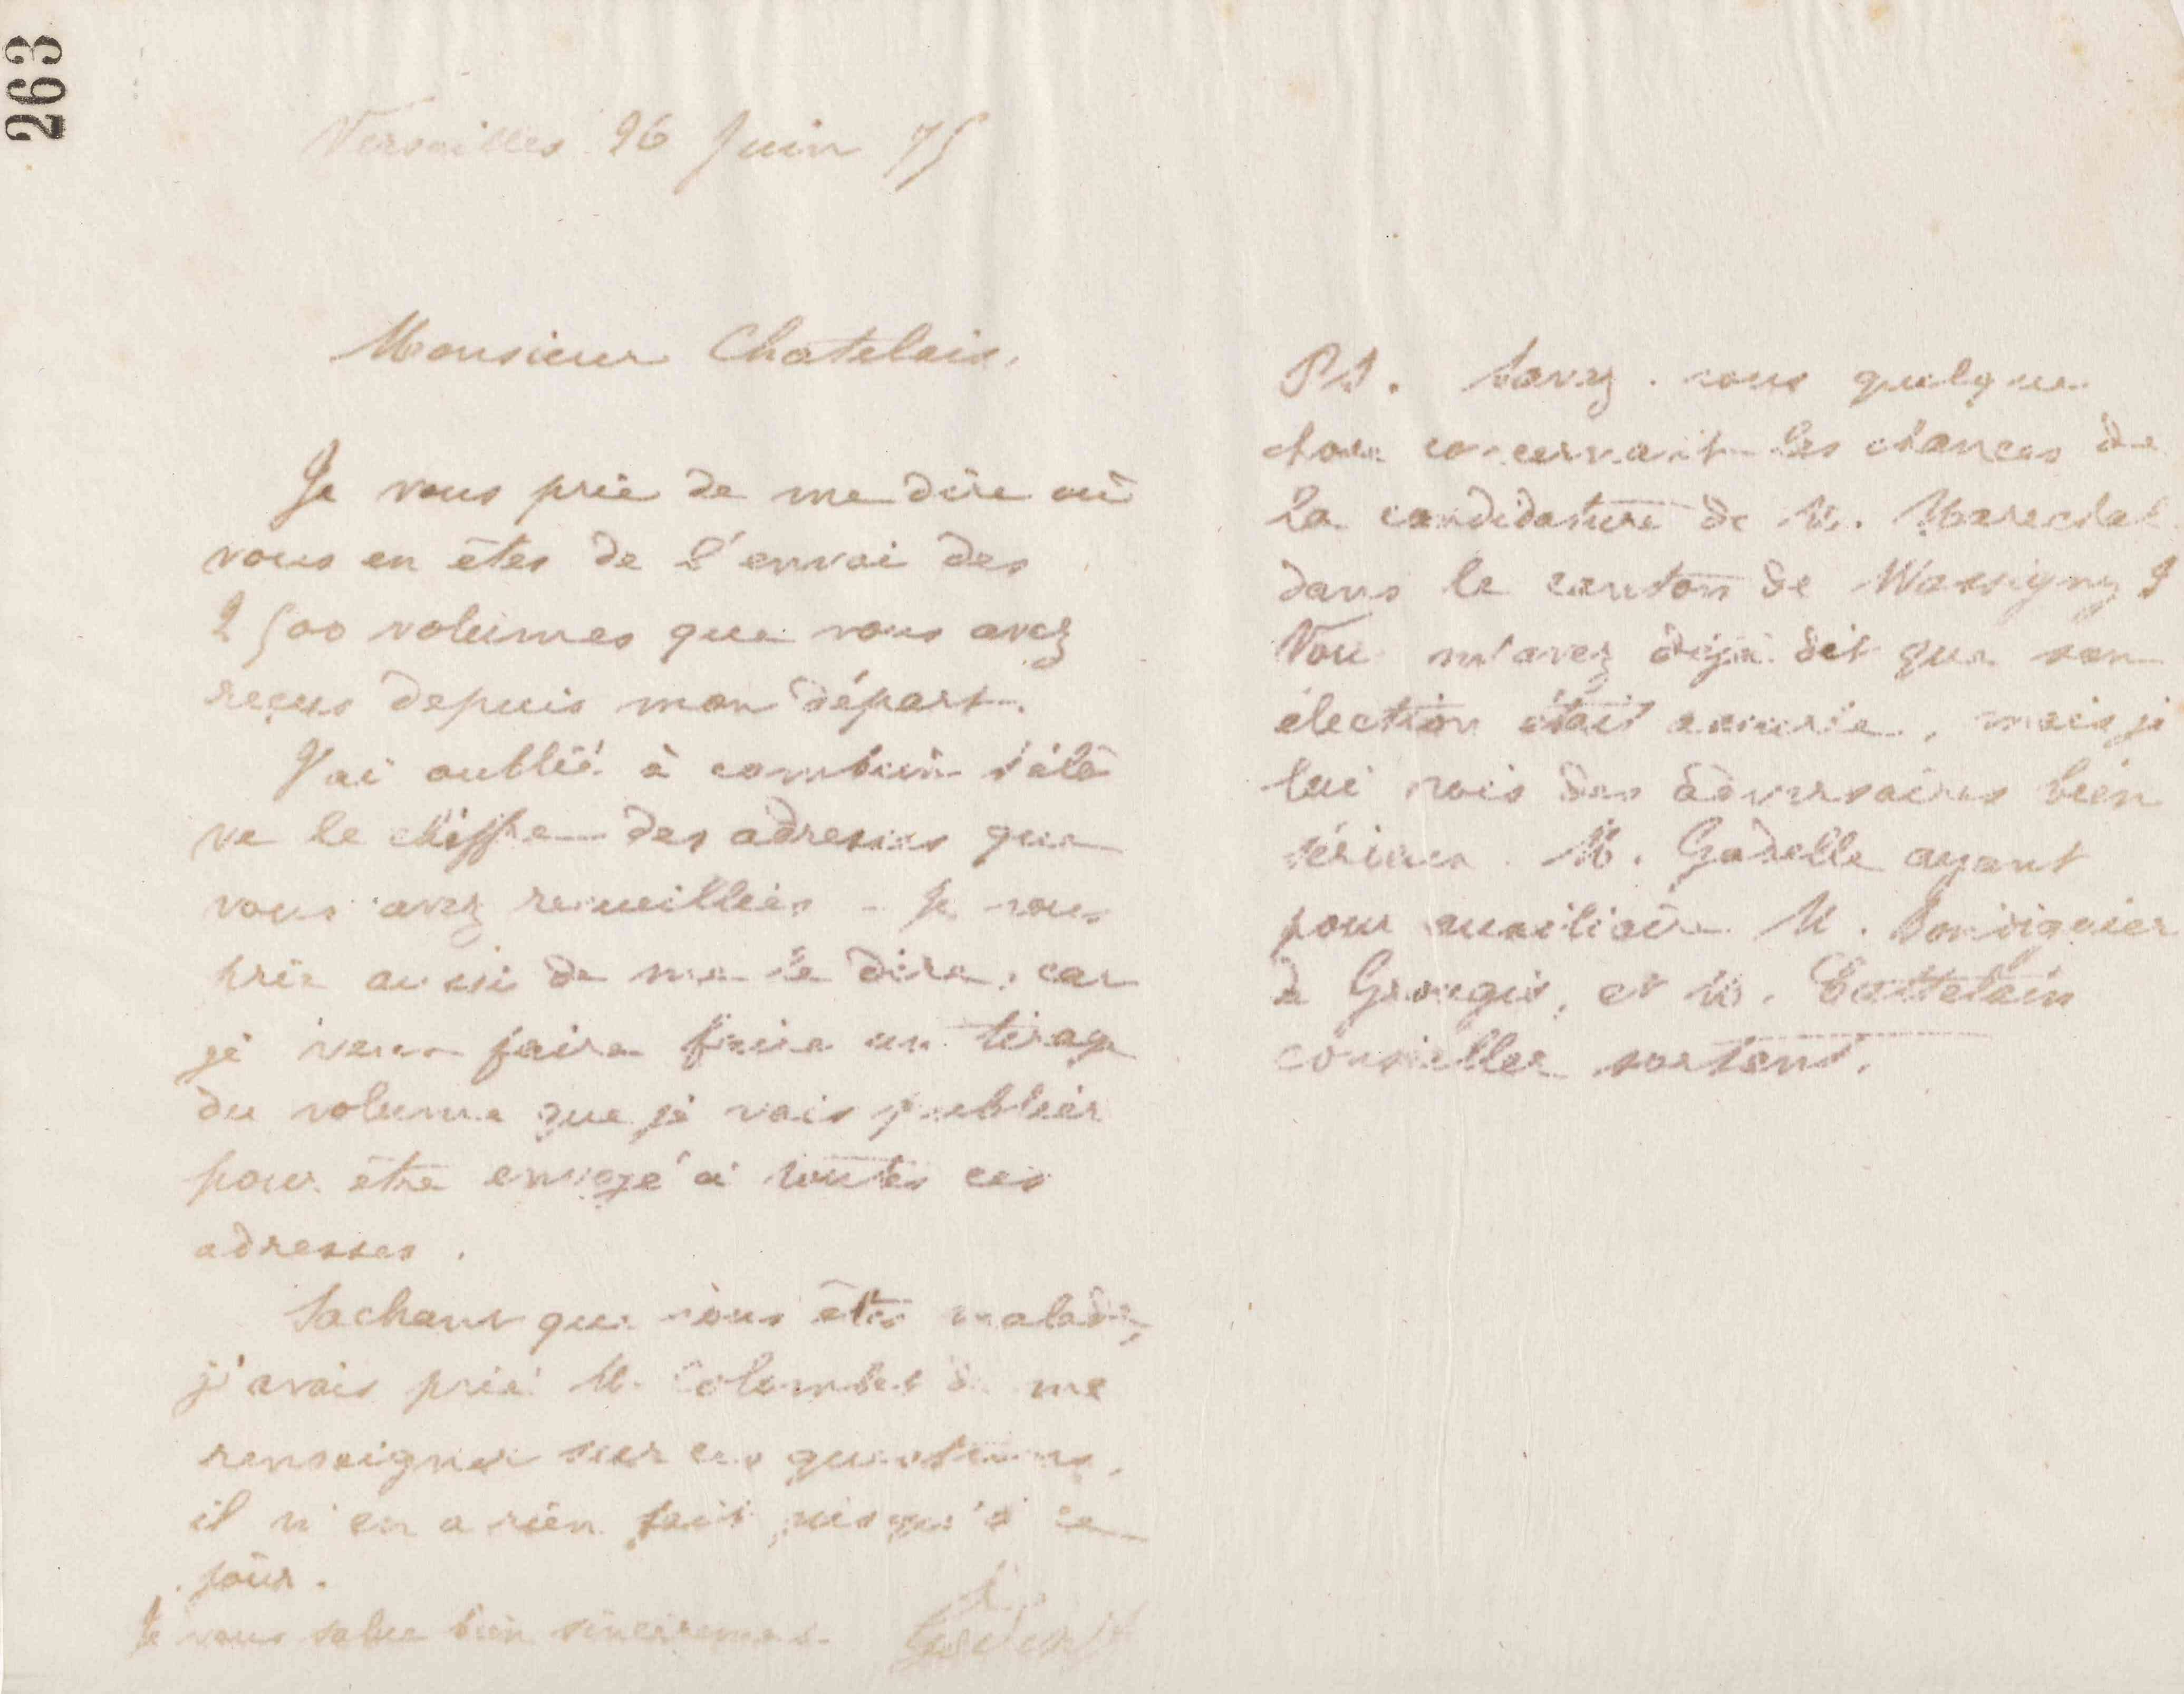 263
Versailles 26 Juin 75
Monsieur Chatelais.
Je vous prie de me dire où
vous en êtes de l'envoi des
2500 volumes que vous avez
reçus depuis mon départ.
J'ai oublié à combien s'élè
ve le chiffre des adresses que
vous avez recueillies - Je vous
prie aussi de me le dire, car
je veux faire faire un tirage
du volume que je vais publier
pour être envoyé à toutes ces
adresses.
Sachant que vous êtes malade,
j'avais prié M. Colombet de me
renseigner sur ces questions,
il n'en a rien fait jusqu'à ce
jour.
Je vous salue bien sincèrement
Godin
PS. Savez-vous quelque
chose concernant les chances de
la candidature de M. Marechal
dans le canton de Wassigny ?
Vous m'avez déjà dit que son
élection était assurée, mais je
lui vois des adversaires bien
sérieux. M. Gadelle ayant
pour auxiliaire M.
de Grougis, et M. Cattelain
conseiller sortant.